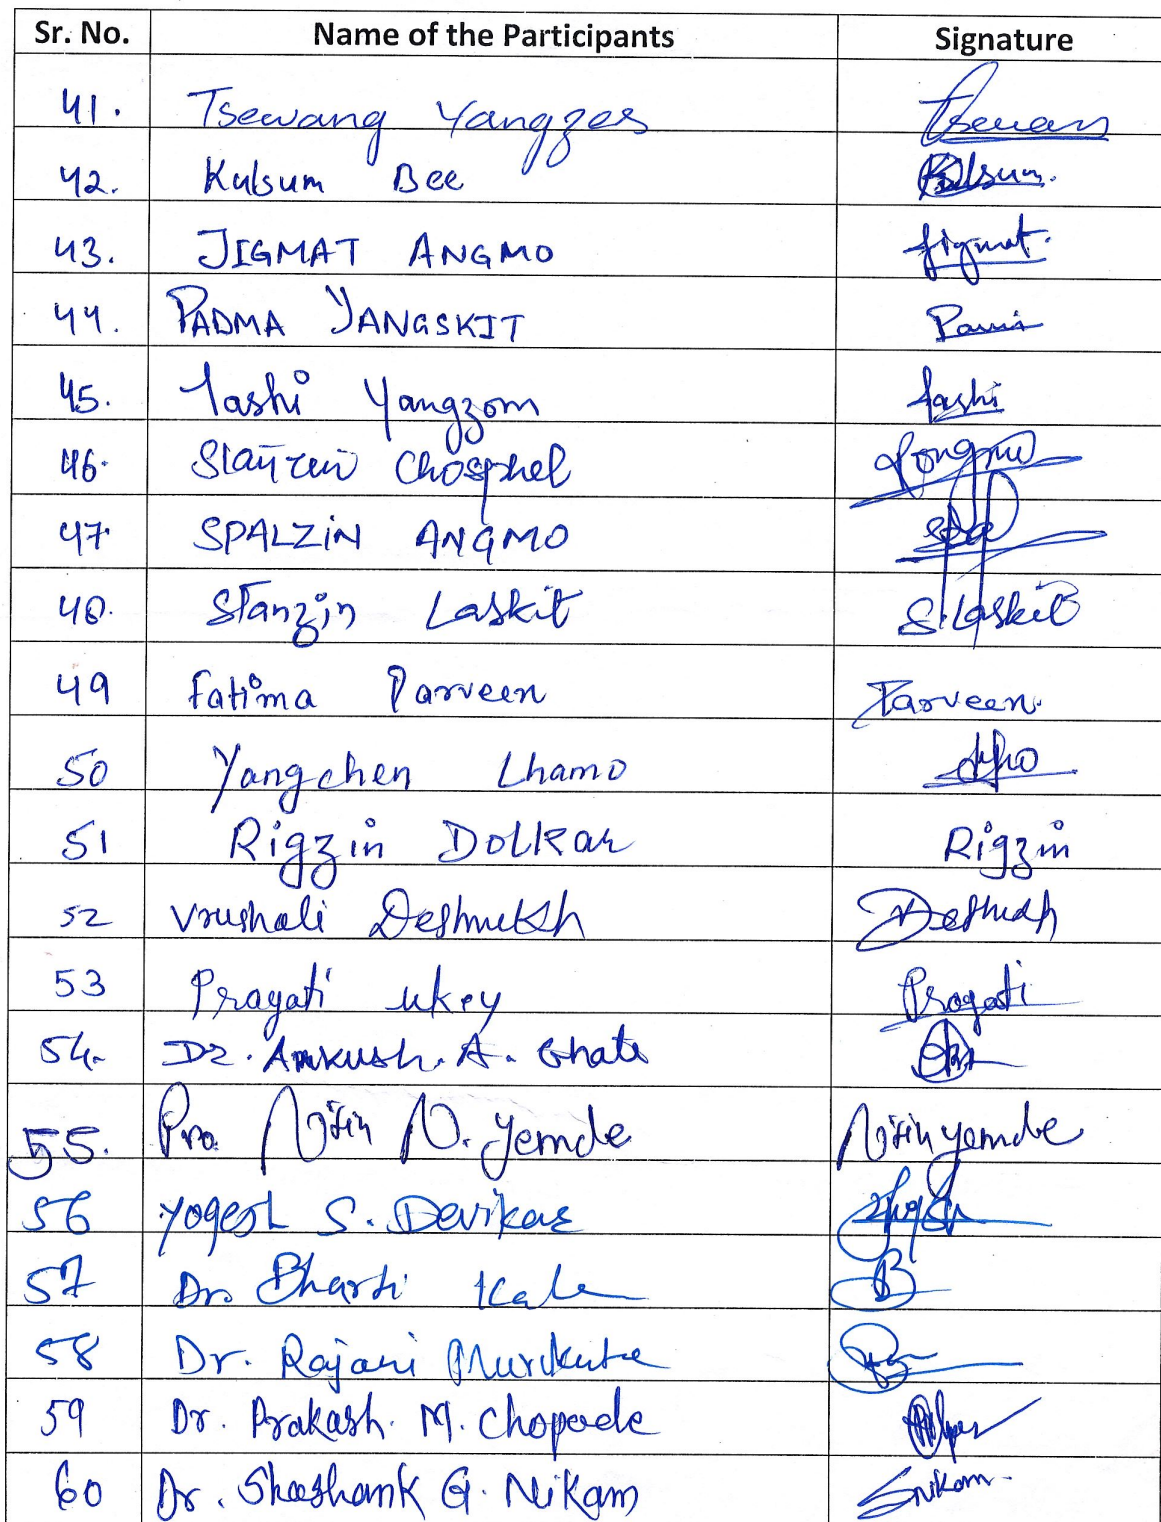 Sr. No. Name of the Participants Signature
41. Tsewang Yangzes Tsewang
42. Kulsum Bee Kulsum.
43. JIGMAT ANGMO Jigmat.
44. PADMA YANGSKIT
45. Tashi Yangzom Tashi
46. Chosphel
47. SPALZIN ANGMO
48. Stanzin Laskit S.Laskit
49 Fatima Parveen Parveen.
50 Yangchen Lhamo
51 Rigzin Dolkar Rigzin
52 Vrushali Deshmukh
53 Pragati ukey Pragati
54. Dr. Ankush. A. Ghate
55. Pro. Nitin N. Yemde Nitin yemde
56 Yogesh S. Devikar
57 Dr. Bharti Kale
58 Dr. Rajani
59 Dr. Prakash. M. Chopade
60 Dr. Shashank G. Nikam Snikam